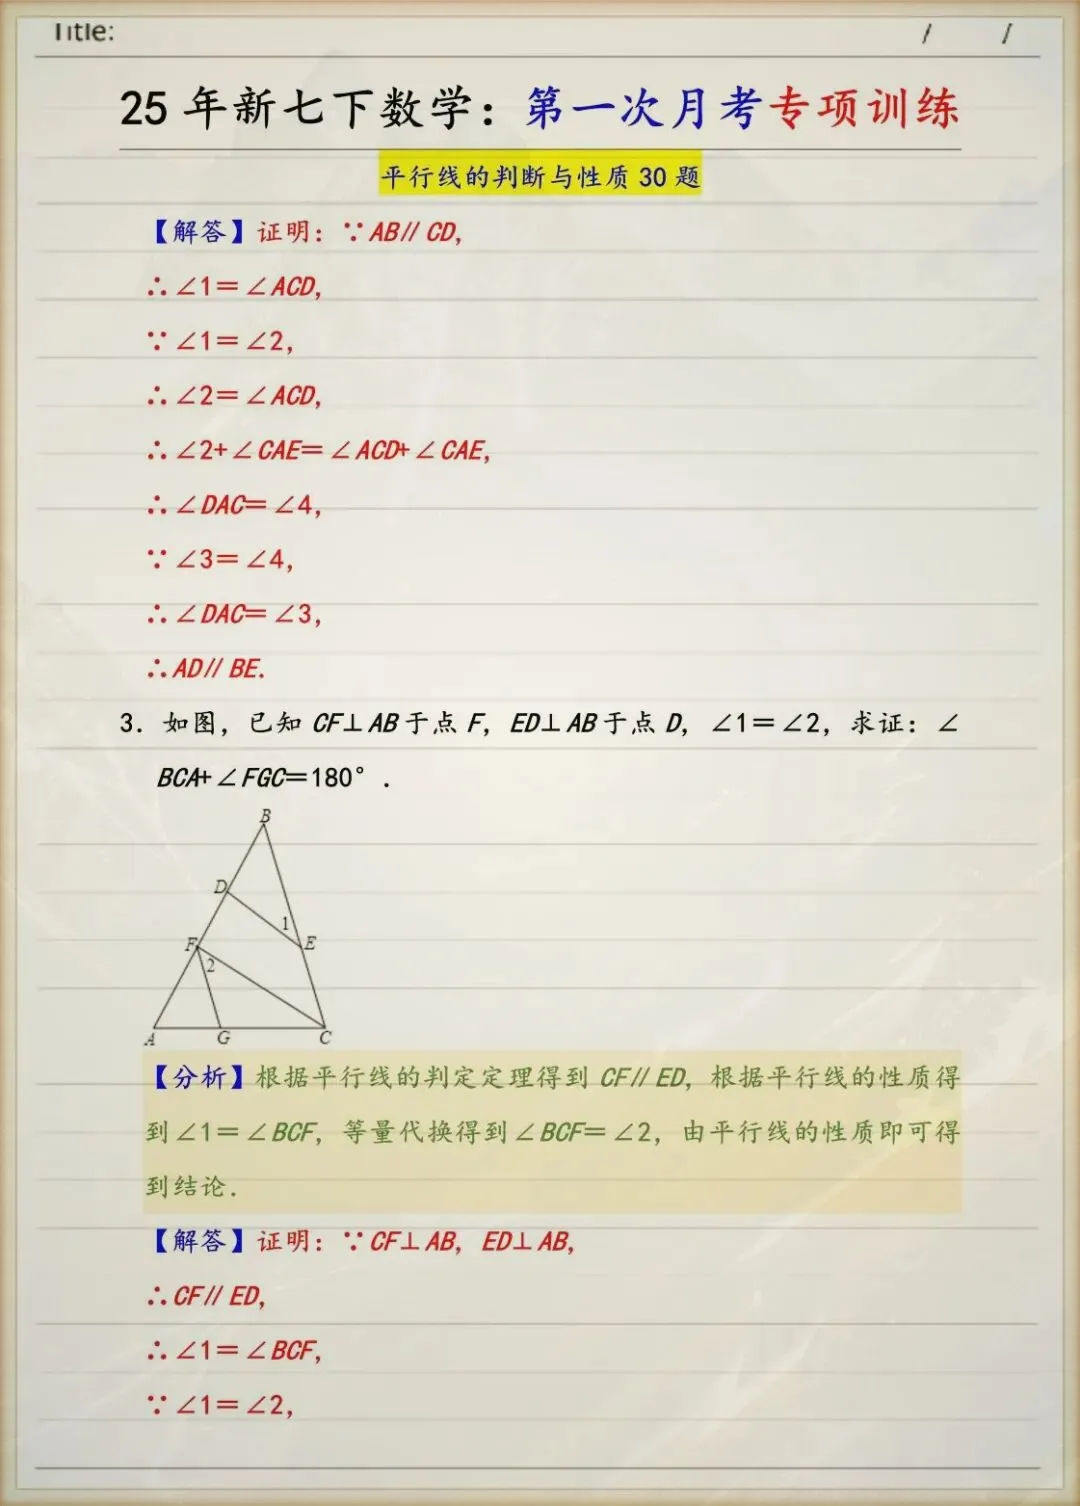 Title: / /
25 年新七下数学：第一次月考专项训练
平行线的判断与性质 30 题
【解答】证明：∵AB∥CD，
∴∠1＝∠ACD，
∵∠1＝∠2，
∴∠2＝∠ACD，
∴∠2+∠CAE＝∠ACD+∠CAE，
∴∠DAC＝∠4，
∵∠3＝∠4，
∴∠DAC＝∠3，
∴AD∥BE．
3．如图，已知 CF⊥AB 于点 F，ED⊥AB 于点 D，∠1＝∠2，求证：∠
BCA+∠FGC＝180°．
B
D
1
F
E
2
A
G
C
【分析】根据平行线的判定定理得到 CF∥ED，根据平行线的性质得
到∠1＝∠BCF，等量代换得到∠BCF＝∠2，由平行线的性质即可得
到结论．
【解答】证明：∵CF⊥AB，ED⊥AB，
∴CF∥ED，
∴∠1＝∠BCF，
∵∠1＝∠2，